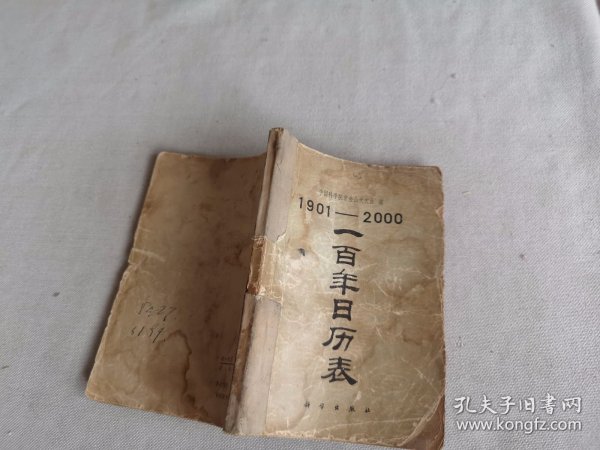 中国科学院紫金山天文台 编
1901—2000
一百年日历表
科学出版社
孔夫子旧书网
www.kongfz.com